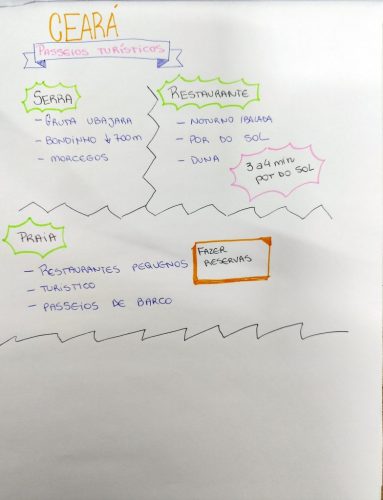 CEARÁ
PASSEIOS TURÍSTICOS
SERRA
- GRUTA UBAJARA
- BONDINHO ↓ 700m
- MORCEGOS
RESTAURANTE
- NOTURNO
- POR DO SOL
- DUNA
3 a 4 min
POR DO SOL
PRAIA
- RESTAURANTES PEQUENOS
- TURÍSTICO
- PASSEIOS DE BARCO
FAZER
RESERVAS